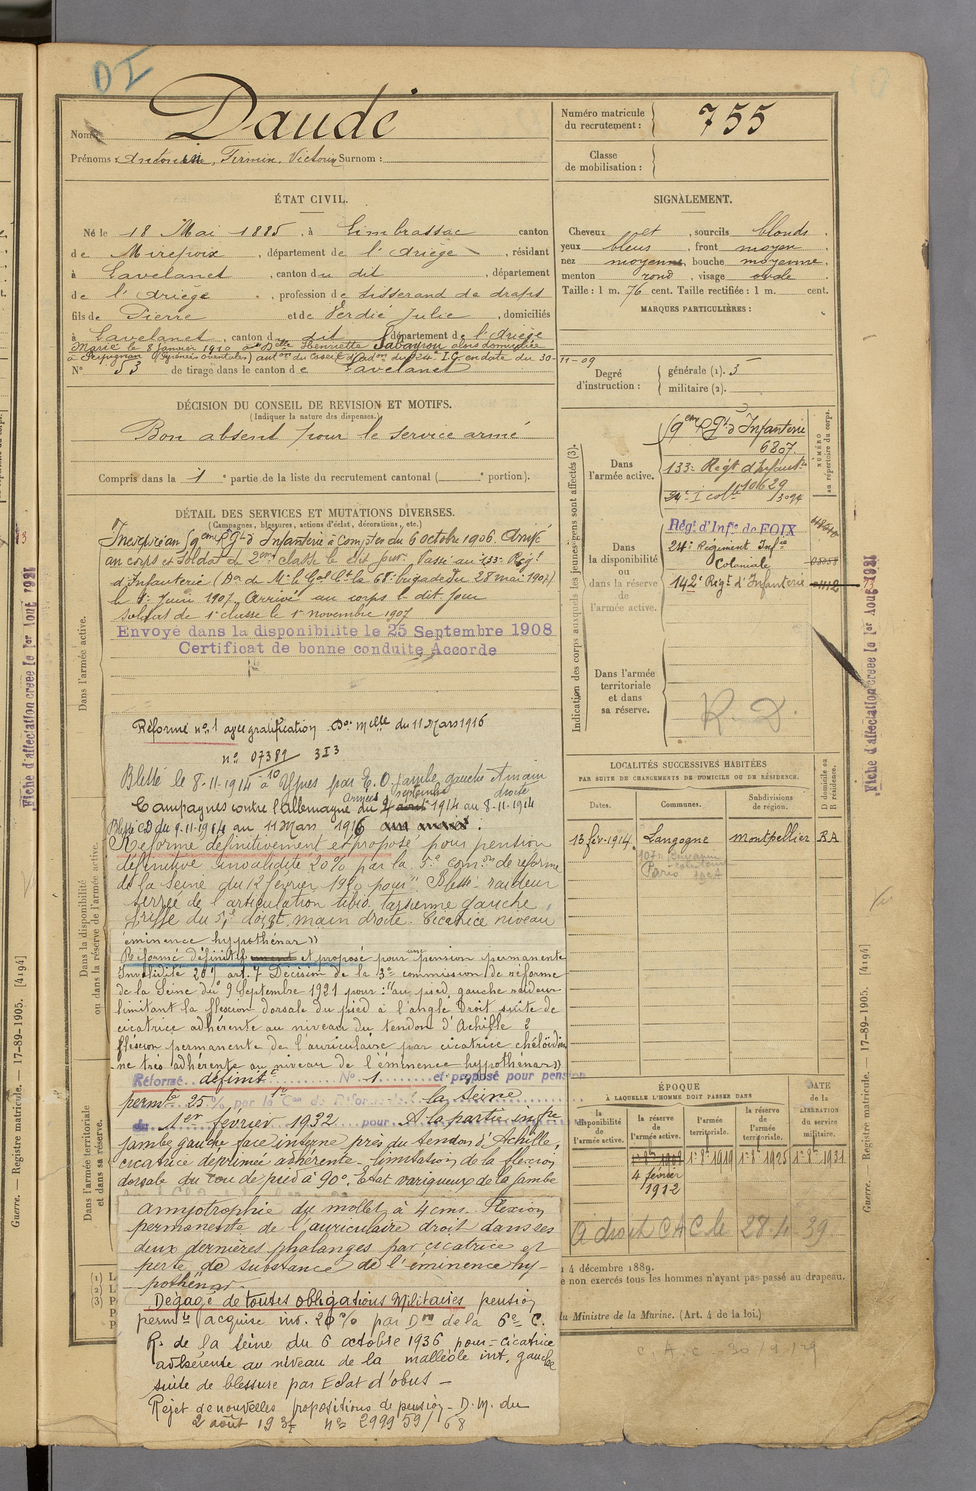 DI
Nom : Daudé
Prénoms : Antonin, Firmin, Victorin Surnom :
Numéro matricule du recrutement : 755
Classe de mobilisation :
ÉTAT CIVIL.
Né le 18 Mai 1885, à Limbrassac canton
de Mirepoix, département de l'Ariège, résidant
à Lavelanet, canton du dit, département
de l'Ariège, profession de tisserand de draps
fils de Pierre et de Verdié Julie, domiciliés
à Lavelanet, canton du dit département de l'Ariège
Marié le 8 Janvier 1910 à Dlle Henriette Sabayrou alors domiciliée
à Perpignan (Pyrénées orientales) auton du Conseil d'Adon du 24e I.C. en date du 30-11-09
N° 53 de tirage dans le canton de Lavelanet
SIGNALEMENT.
Cheveux et, sourcils blonds.
yeux bleus, front moyen
nez moyenne, bouche moyenne,
menton rond, visage ovale
Taille : 1 m. 76 cent. Taille rectifiée : 1 m. cent.
MARQUES PARTICULIÈRES :
Degré d'instruction : générale (1). 3
militaire (2).
DÉCISION DU CONSEIL DE REVISION ET MOTIFS.
(Indiquer la nature des dispenses.)
Bon absent pour le service armé
Compris dans la 1e partie de la liste du recrutement cantonal ( e portion).
DÉTAIL DES SERVICES ET MUTATIONS DIVERSES.
(Campagnes, blessures, actions d'éclat, décorations, etc.)
Incorporé au 9em Rgt d'Infanterie à Compter du 6 octobre 1906. Arrivé
au corps et Soldat de 2em classe le dit jour. Passé au 133e Régt
d'Infanterie (Don de Mr le Gal Ct la 68e brigade du 28 mai 1907)
le 1er Juin 1907. Arrivé au corps le dit jour
Soldat de 1e classe le 1er novembre 1907
Envoyé dans la disponibilité le 25 Septembre 1908
Certificat de bonne conduite Accordé
Réformé n° 1 avec gratification Don Melle du 11 Mars 1916
n° 07381 3I3
Blessé le 8-11-1914 à Ypres par E.O. jambe gauche et main droite
Campagnes contre l'Allemagne Armées du septembre 1914 au 8-11-1914
Blessé CD du 9-11-1914 au 11 Mars 1916
Réformé définitivement et proposé pour pension
définitive invalidité 20% par la 5e comon de réforme
de la Seine du 12 février 1920 pour "Blessé raideur
serrée de l'articulation tibio tarsienne gauche,
griffe du 5e doigt main droite. Cicatrice niveau
éminence hypothénar"
Réformé définitif et proposé pour pension permanente
Invalidité 20% art. 7 Décision de la 3e commission de réforme
de la Seine du 9 Septembre 1921 pour : "au pied gauche raideur
limitant la flexion dorsale du pied à l'angle Droit suite de
cicatrice adhérente au niveau du tendon d'Achille 2
flexion permanente de l'auriculaire par cicatrice chéloïdien
ne très adhérente au niveau de l'éminence hypothénar"
Réformé définitif N° 1 et proposé pour pension
permte 25% par la 1e Con de Réforme de la Seine
du 1er février 1932 pour A la partie infre
jambe gauche face interne près du tendon d'Achille,
cicatrice déprimée adhérente - limitation de la flexion
dorsale du cou de pied à 90°. Etat variqueux de la jambe
amyotrophie du mollet à 4 cms. Flexion
permanente de l'auriculaire droit dans ses
deux dernières phalanges par cicatrice et
perte de substance de l'éminence hy-
pothénar.
Dégagé de toutes obligations Militaires pension
permte acquise inv. 20% par Don de la 6e C.
R. de la Seine du 6 octobre 1936 pour = cicatrice
adhérente au niveau de la malléole int. gauche
suite de blessure par Eclat d'obus -
Rejet de nouvelles propositions de pension - D.M. du
2 août 1937 n° 299959/68
Indication des corps auxquels les jeunes gens sont affectés (3).
NUMÉRO au répertoire du corps.
Dans l'armée active.
9em Rgt d'Infanterie
6807.
133e Régt d'Infante
10629
24e I colle 13094
Dans la disponibilité ou dans la réserve de l'armée active.
Régt d'Infie de FOIX
24e Régiment Infie
Coloniale
142e Régt d'Infanterie
Dans l'armée territoriale et dans sa réserve.
R.D.
LOCALITÉS SUCCESSIVES HABITÉES
PAR SUITE DE CHANGEMENTS DE DOMICILE OU DE RÉSIDENCE.
Dates. Communes. Subdivisions de région. D domicile ou R résidence.
13 fév. 1914. Langogne Montpellier RA
Paris
ÉPOQUE
À LAQUELLE L'HOMME DOIT PASSER DANS
la disponibilité de l'armée active. la réserve de l'armée active. l'armée territoriale. la réserve de l'armée territoriale.
DATE de la LIBÉRATION du service militaire.
4 février 1912
A droit CAC le 28-11-39.
4 décembre 1889.
e non exercés tous les hommes n'ayant pas passé au drapeau.
du Ministre de la Marine. (Art. 4 de la loi.)
Dans l'armée active.
Dans la disponibilité ou dans la réserve de l'armée active.
Dans l'armée territoriale et dans sa réserve.
Fiche d'affectation créée le 1er Août 1921
Fiche d'affectation créée le 1er Août 1921
Guerre. — Registre matricule. — 17-89-1905. [4194]
Guerre. — Registre matricule. — 17-89-1905. [4194]